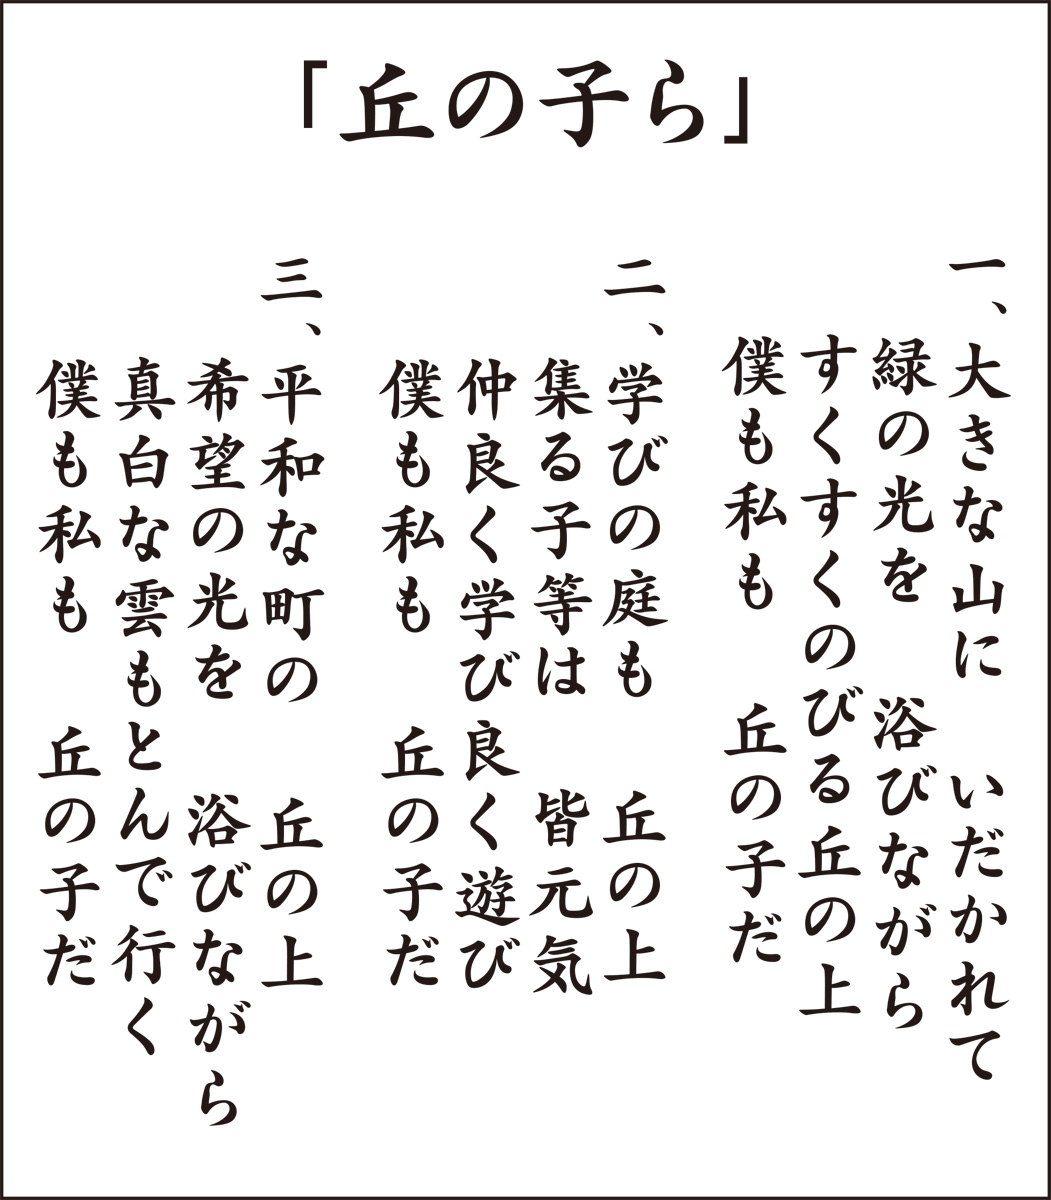 「丘の子ら」
一、大きな山に　いだかれて
緑の光を　浴びながら
すくすくのびる丘の上
僕も私も　丘の子だ
二、学びの庭も　丘の上
集る子等は　皆元気
仲良く学び良く遊び
僕も私も　丘の子だ
三、平和な町の　丘の上
希望の光を　浴びながら
真白な雲もとんで行く
僕も私も　丘の子だ